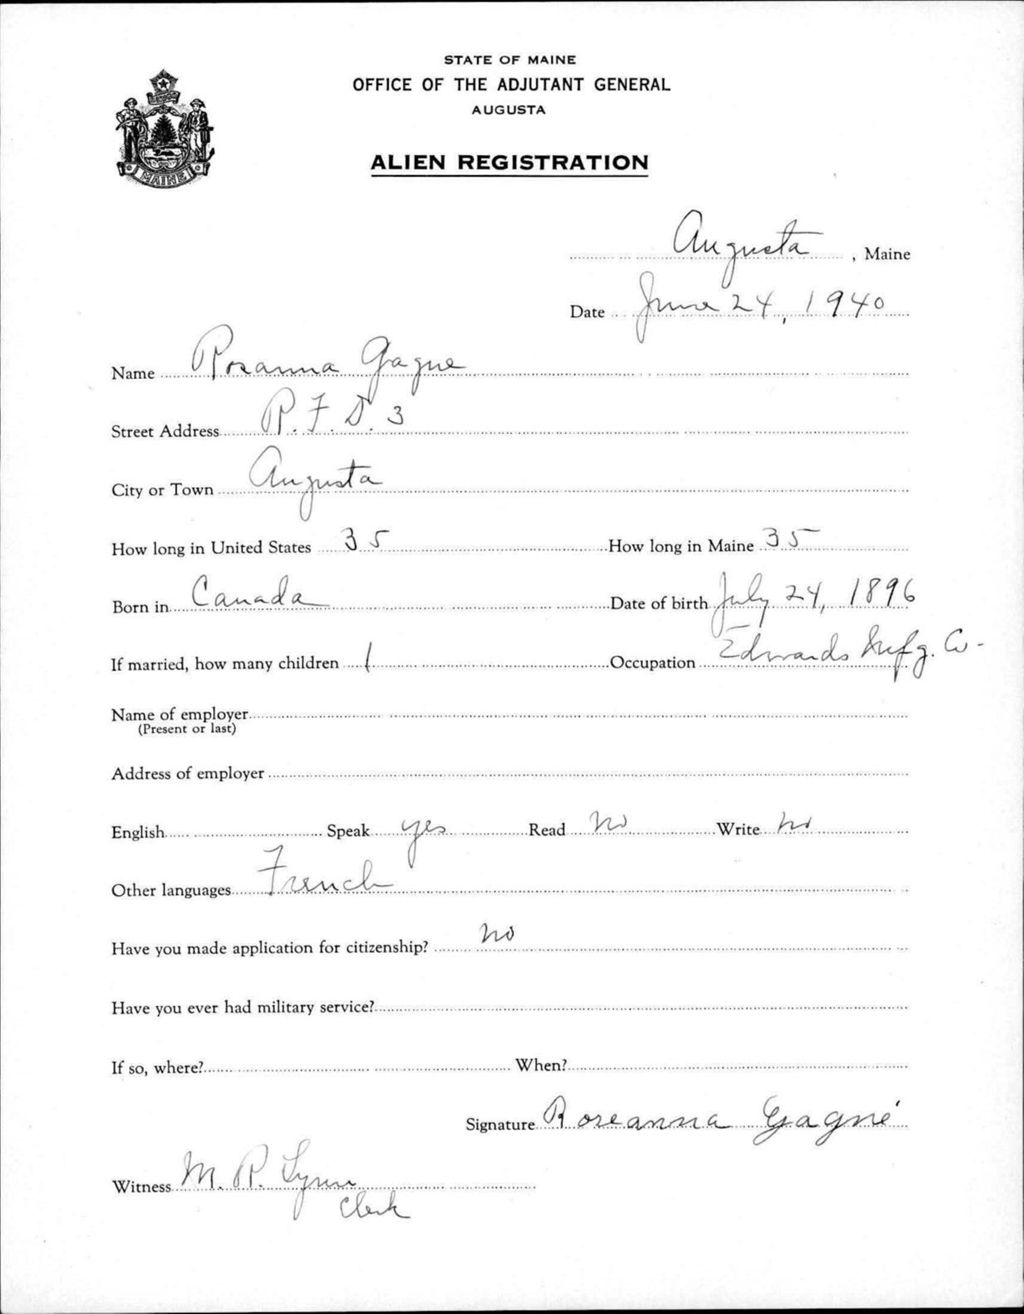 STATE OF MAINE
OFFICE OF THE ADJUTANT GENERAL
AUGUSTA
ALIEN REGISTRATION
MAINE
Augusta, Maine
Date June 24, 1940
Name Rosanna Gagne
Street Address R.F.D. 3
City or Town Augusta
How long in United States 35 How long in Maine 35
Born in Canada Date of birth July 24, 1896
If married, how many children 1 Occupation Edwards Mfg. Co.
Name of employer
(Present or last)
Address of employer
English Speak yes Read no Write no
Other languages French
Have you made application for citizenship? no
Have you ever had military service?
If so, where? When?
Signature Roseanna Gagné
Witness M. R. Lynn
Clerk